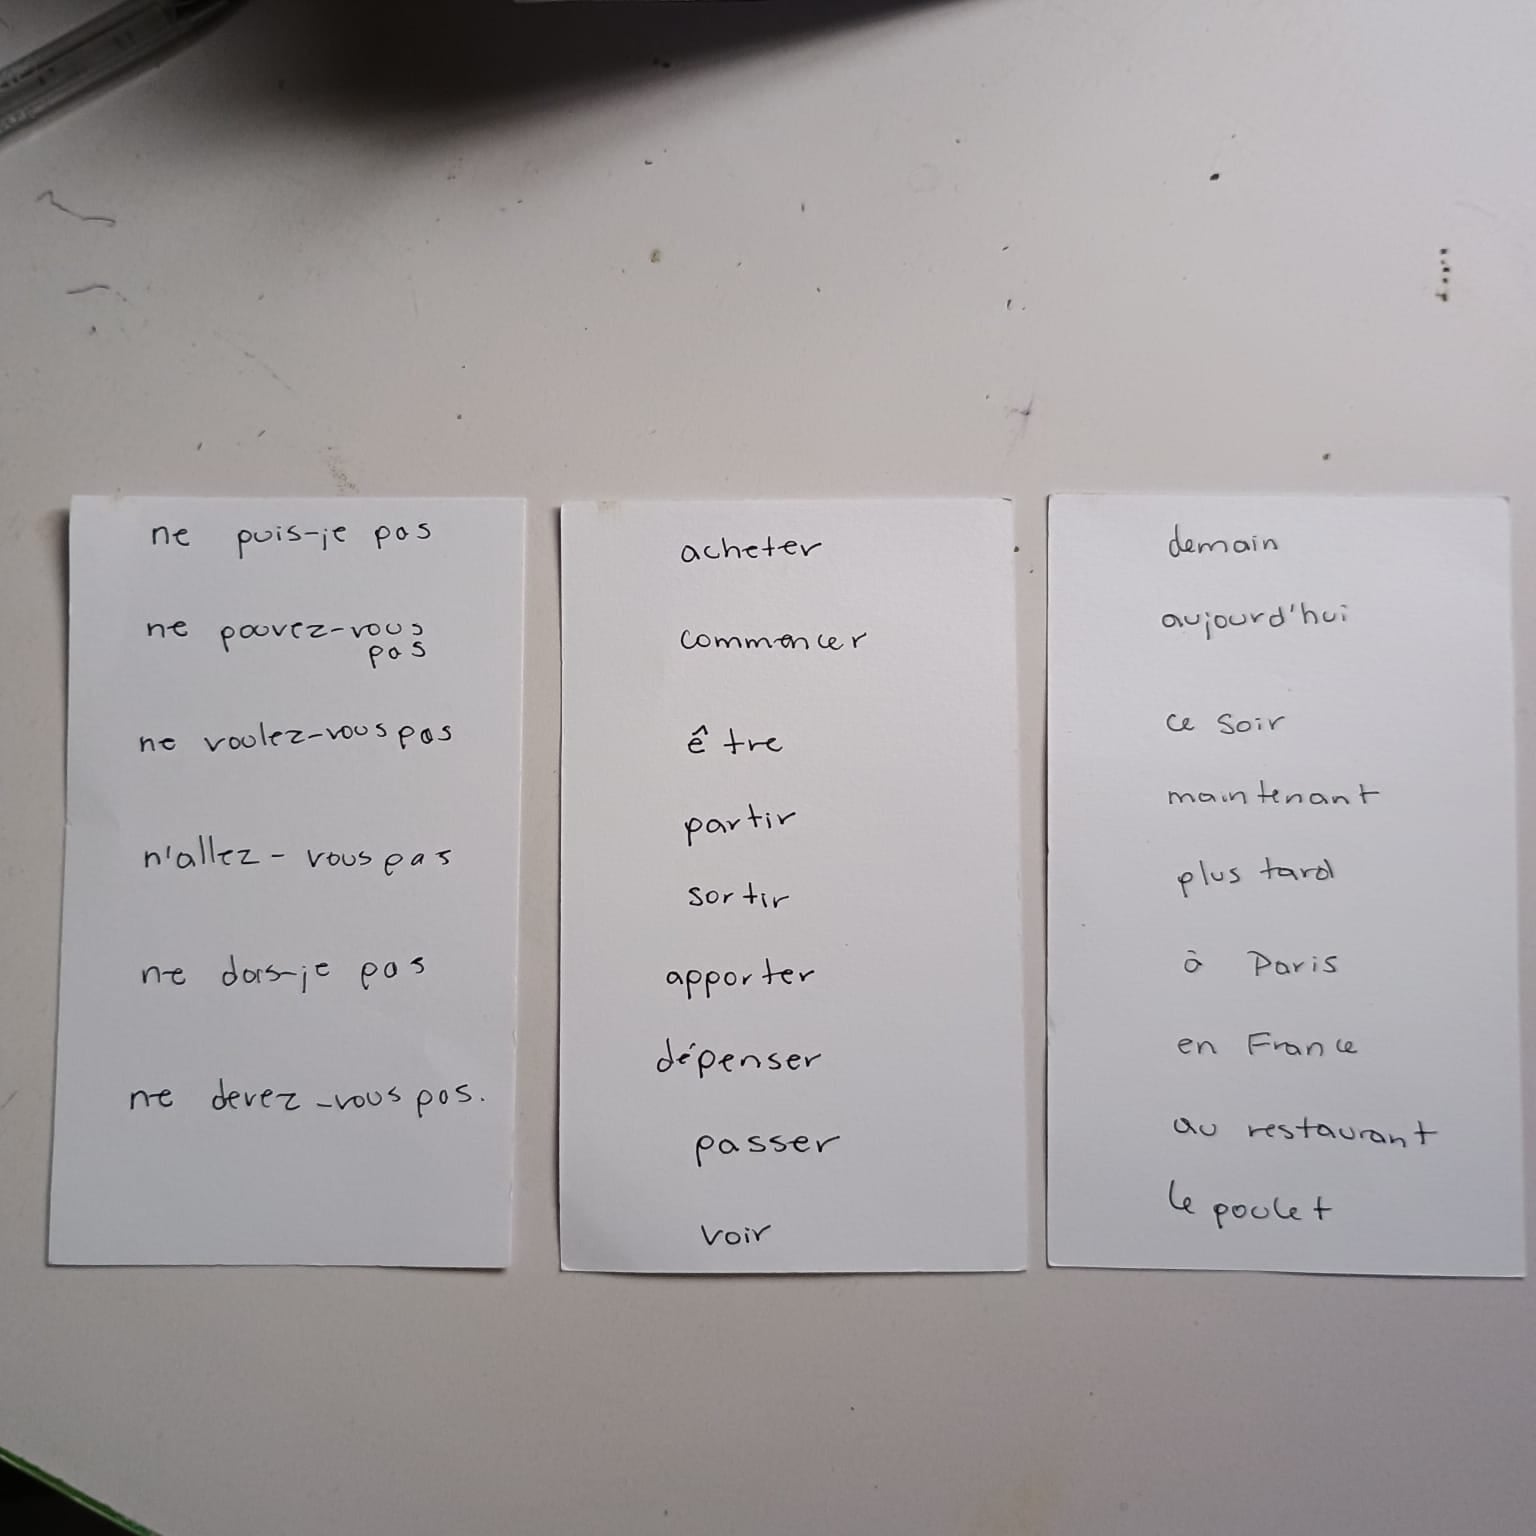 ne puis-je pas
ne pouvez-vous
pas
ne voulez-vous pas
n'allez-vous pas
ne dois-je pas
ne devez-vous pas.
acheter
commencer
être
partir
sortir
apporter
dépenser
passer
voir
demain
aujourd'hui
ce soir
maintenant
plus tard
à Paris
en France
au restaurant
le poulet